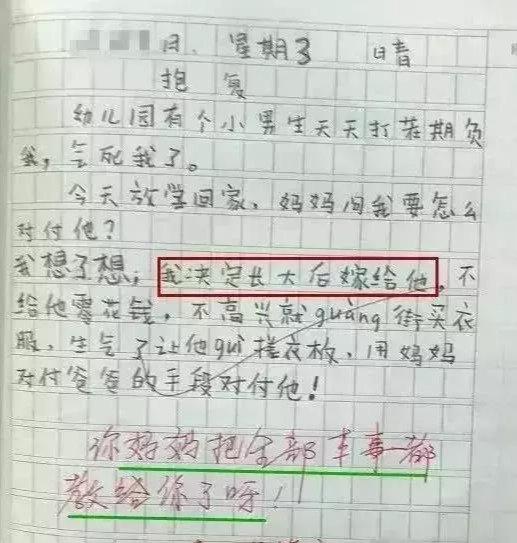 日、星期3 日晴
抱 复
幼儿园有个小男生天天打茬期负
我，气死我了。
今天放学回家，妈妈问我要怎么
对付他？
我想了想，我决定长大后嫁给他，不
给他零花钱，不高兴就guàng街买衣
服，生气了让他guì搓衣板，用妈妈
对付爸爸的手段对付他！
你妈妈把全部本事都
教给你了呀！